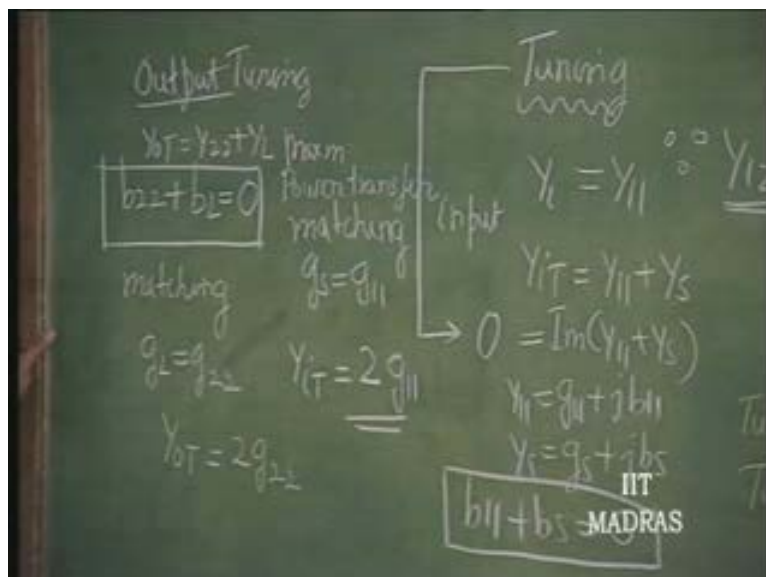 Output Tuning
YOT = Y22 + YL
b22 + bL = 0
matching
gL = g22
YOT = 2g22
Power transfer
matching
gs = g11
YiT = 2g11
Tuning
input
Yi = Y11 ∵ Y12
YiT = Y11 + Ys
0 = Im(Y11 + Ys)
Y11 = g11 + jb11
Ys = gs + jbs
b11 + bs =
IIT
MADRAS